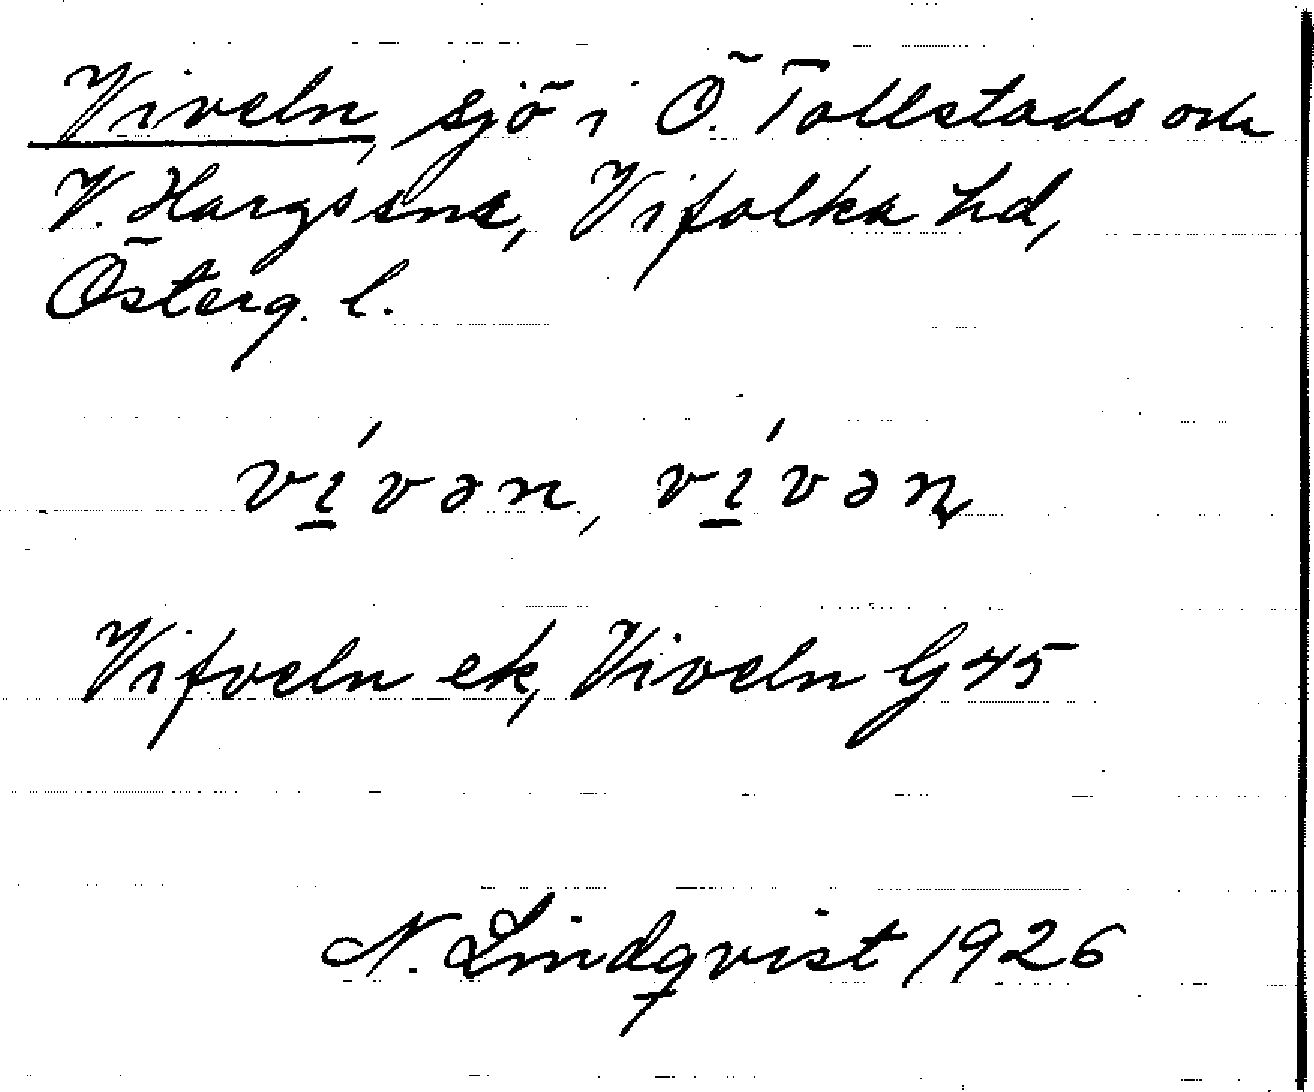 Viveln, sjö i Ö. Tollstads och
V. Hargs snr, Vifolka hd,
Österg. l.
ví̲vən, ví̲vəɳ
Vifveln ek, Viveln G 45
N. Lindqvist 1926